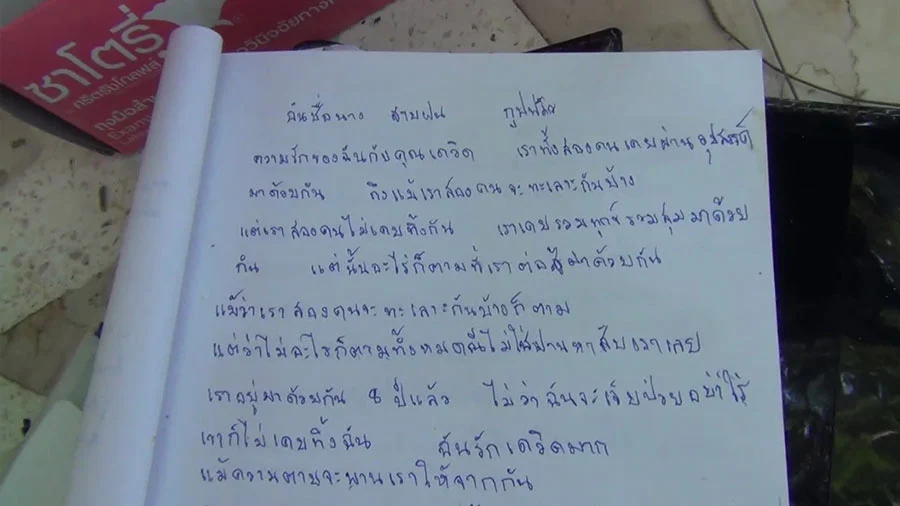 ชาโตรี่
ศรีตรังโกลฟส์
ถุงมือสำ
Exam
ฉันชื่อนาง สายฝน
ความรักของฉันกับคุณเดวิด เราทั้งสองคนเคยผ่านอุปสรรค์
มาด้วยกัน ถึงแม้เราสองคนจะทะเลาะกันบ้าง
แต่เราสองคนไม่เคยทิ้งกัน เราเคยรวมทุกข์รวมสุขมาด้วย
กัน แต่นั้นอะไรก็ตามที่เราต่อสู้มาด้วยกัน
แม้ว่าเราสองคนจะทะเลาะกันบ้างก็ตาม
แต่ว่าไม่อะไรก็ตามทั้งหมดนี้ไม่ใช่ปานหาสับเราเลย
เราอยู่มาด้วยกัน 8 ปีแล้ว ไม่ว่าฉันจะเจ็บป่วย
เขาก็ไม่เคยทิ้งฉัน ฉันรักเดวิดมาก
แม้ความตายจะพานเราให้จากกัน